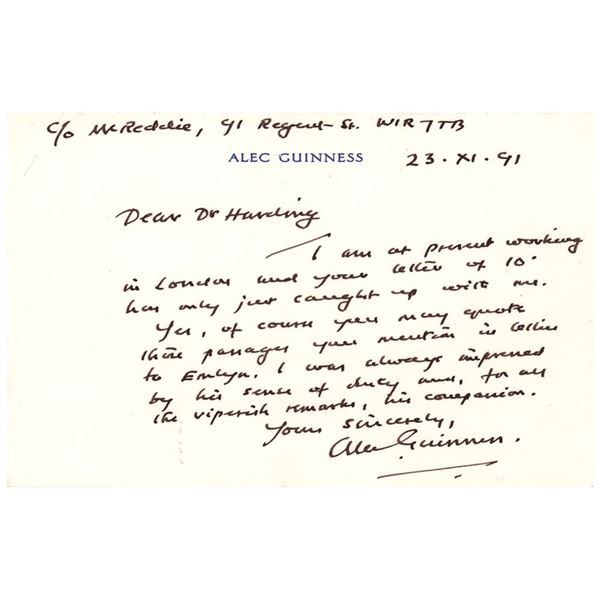 c/o McReddie, 91 Regent St. W1R 7TB
ALEC GUINNESS 23.XI.91
Dear Dr Harding
I am at present working
in London and your letter of 10th
has only just caught up with me.
Yes, of course you may quote
those passages you mention in letters
to Emlyn. I was always impressed
by his sense of duty and, for all
the viperish remarks, his compassion.
Yours sincerely,
Alec Guinness.